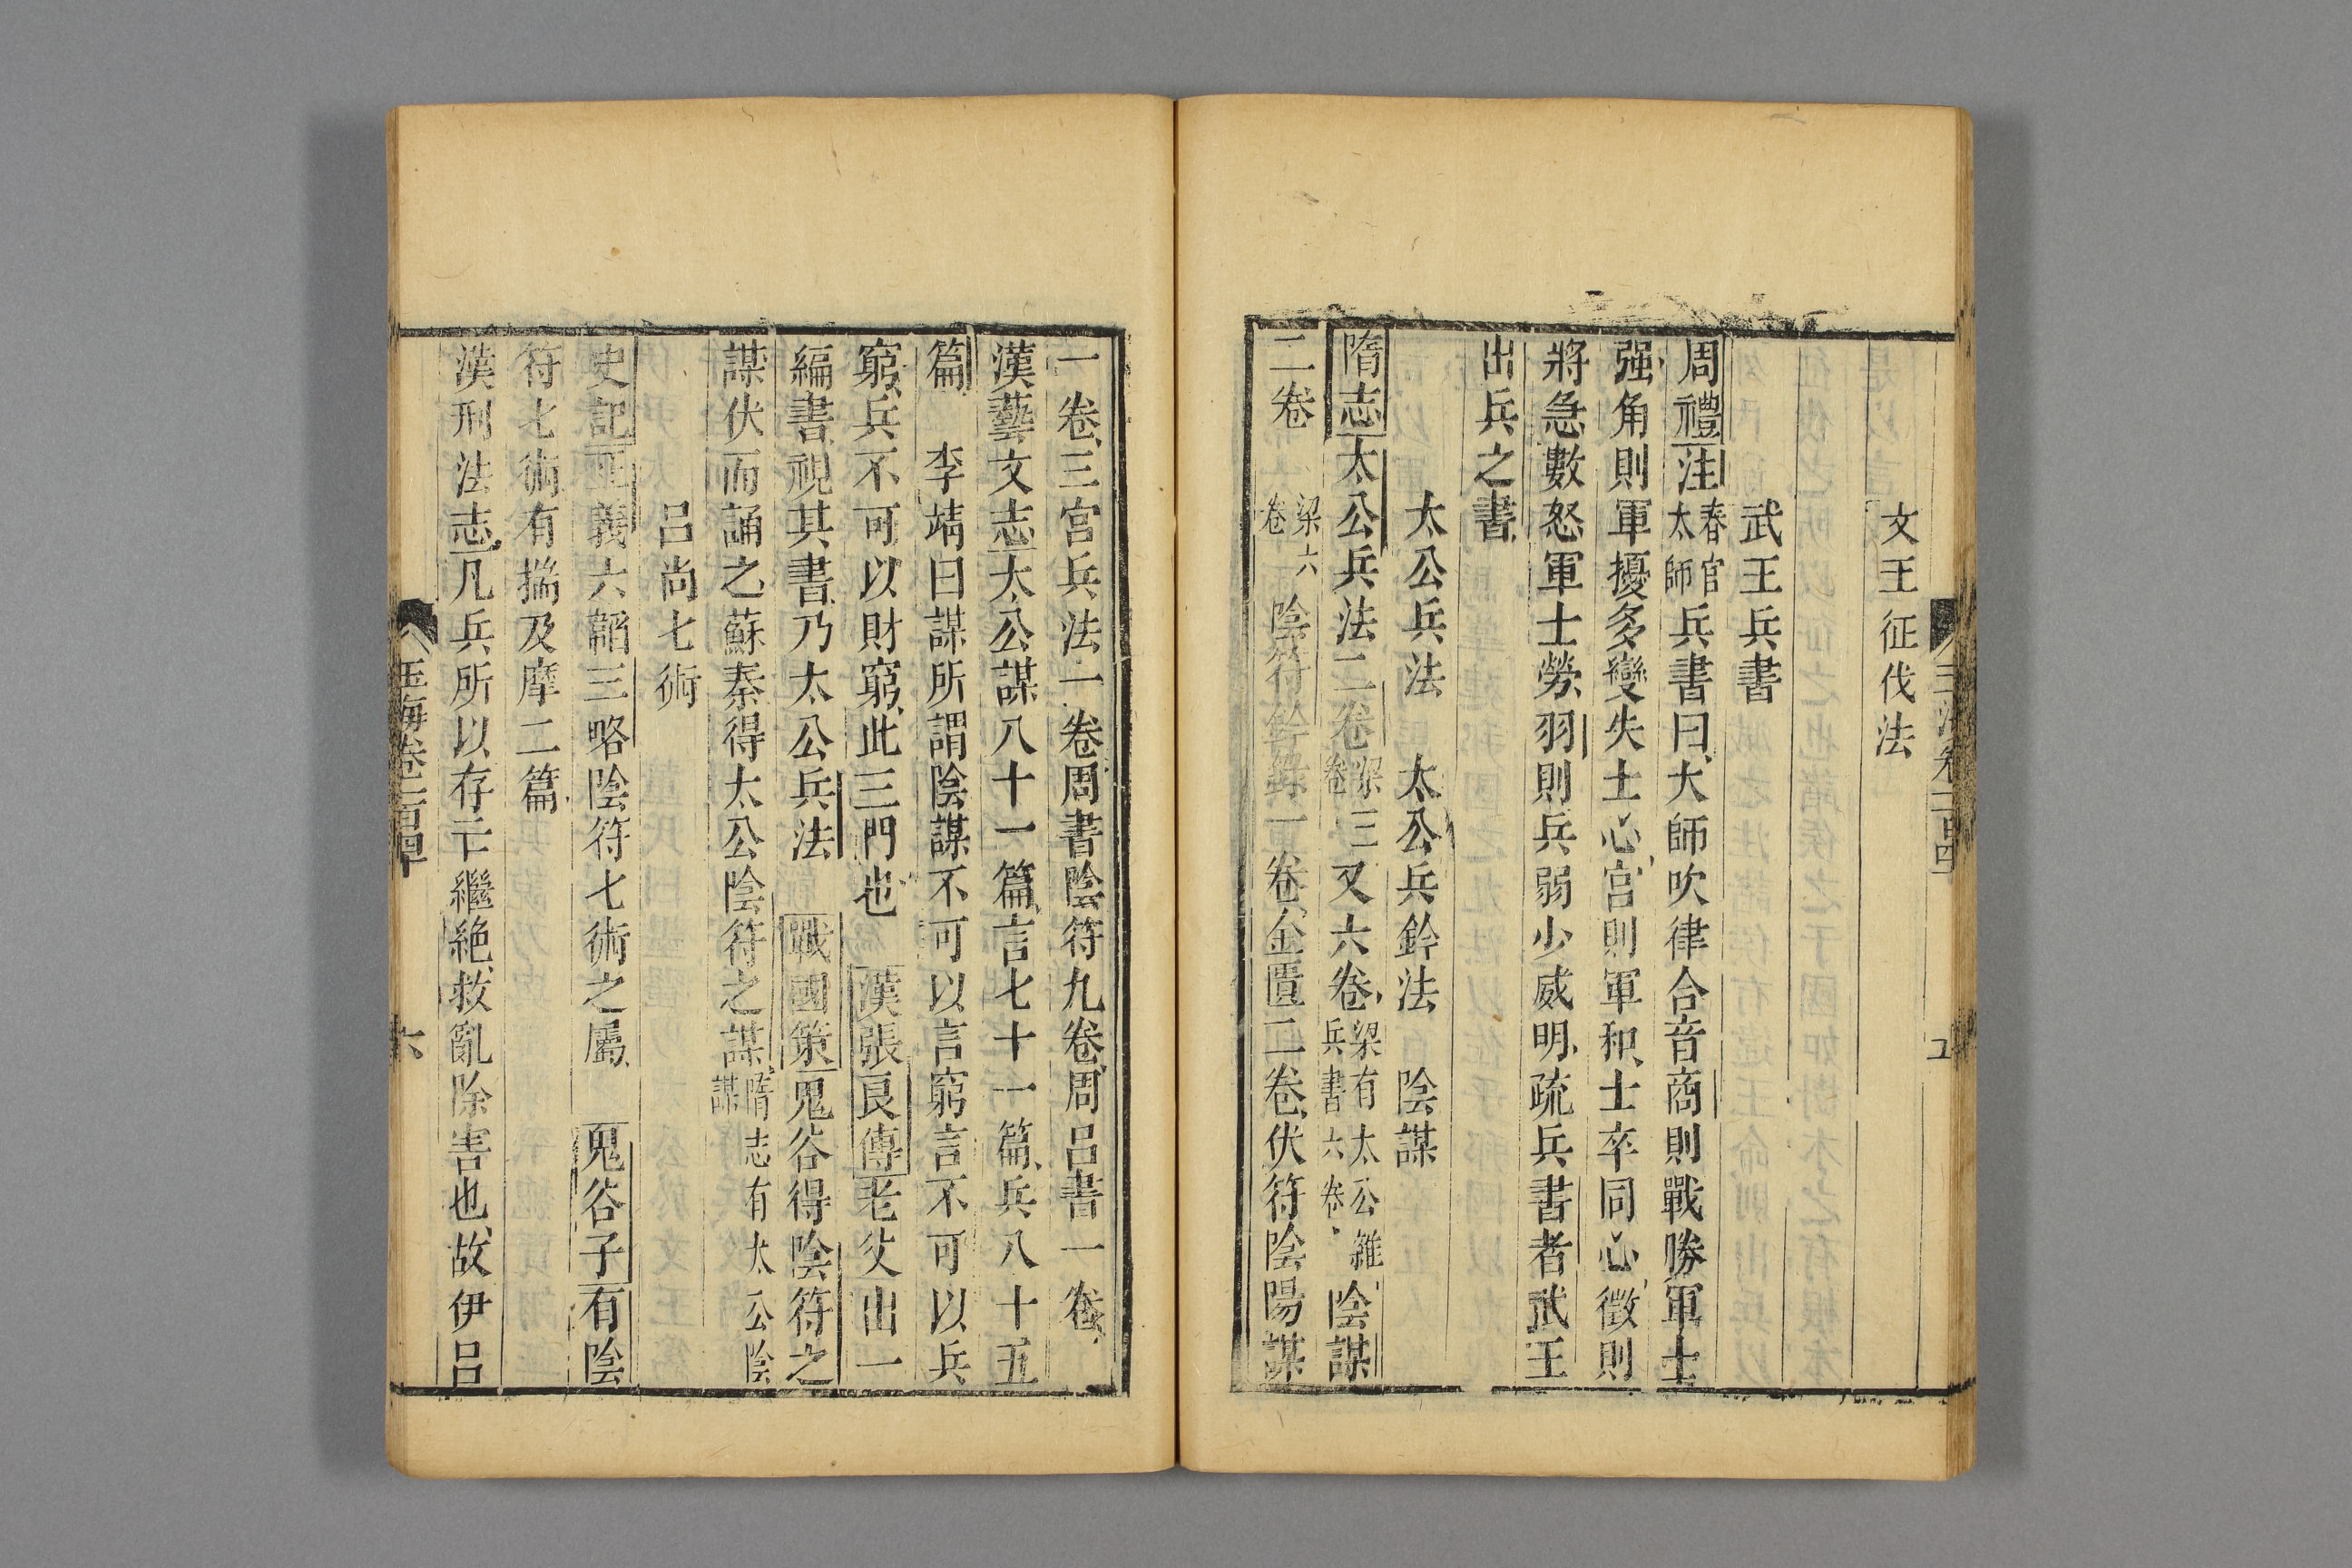 文王征伐法
武王兵書
周禮注春官太師兵書曰大師吹律合音商則戰勝軍士
强角則軍擾多變失士心宫則軍和士卒同心徵則
將急數怒軍士勞羽則兵弱少威明疏兵書者武王
出兵之書
太公兵法 太公兵鈐法 陰謀
隋志太公兵法二卷梁三卷又六卷梁有太公雜兵書六卷陰謀
二卷梁六卷陰符鈐錄一卷金匱二卷伏符陰陽謀
一卷三宫兵法一卷周書陰符九卷周呂書一卷
漢藝文志太公謀八十一篇言七十一篇兵八十五
篇 李靖曰謀所謂陰謀不可以言窮言不可以兵
窮兵不可以財窮此三門也 漢張良傳老父出一
編書視其書乃太公兵法 戰國策鬼谷得陰符之
謀伏而誦之蘇秦得太公陰符之謀隋志有太公陰謀
呂尚七術
史記正義六韜三略陰符七術之屬 鬼谷子有陰
符七術有揣及摩二篇
漢刑法志凡兵所以存亡繼絶救亂除害也故伊呂
玉海卷一百四十 六